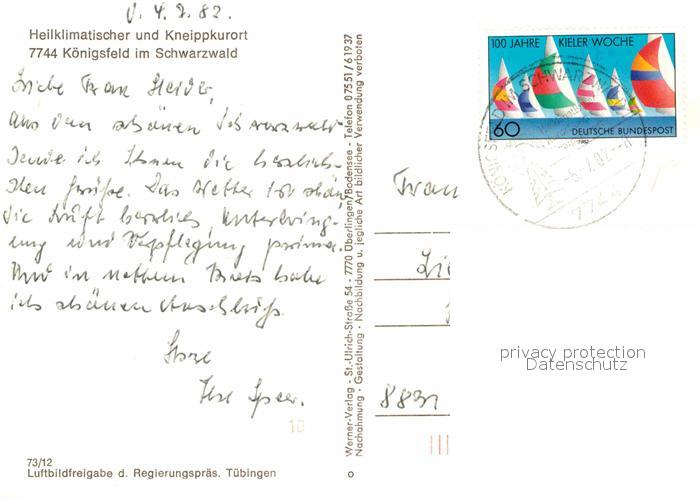 4.7.82.
Heilklimatischer und Kneippkurort
7744 Königsfeld im Schwarzwald
Liebe Frau
aus dem schönen Schwarzwald
sende ich Ihnen die herzlich-
sten Grüße. Das Wetter ist schön
die Luft herrlich Unterbring-
ung und Verpflegung prima.
Und in nettem Kreis habe
ich schönen Anschluß.
Ihre
Ilse Speer.
10
73/12
Luftbildfreigabe d. Regierungspräs. Tübingen
Werner-Verlag - St.-Ulrich-Straße 54 - 7770 Überlingen/Bodensee - Telefon 07551/61937
Nachahmung · Gestaltung · Nachbildung u. jegliche Art bildlicher Verwendung verboten
100 JAHRE KIELER WOCHE
60 DEUTSCHE BUNDESPOST
1982
IM SCHWARZW
-5.7.82
7744
Frau
8831
privacy protection
Datenschutz